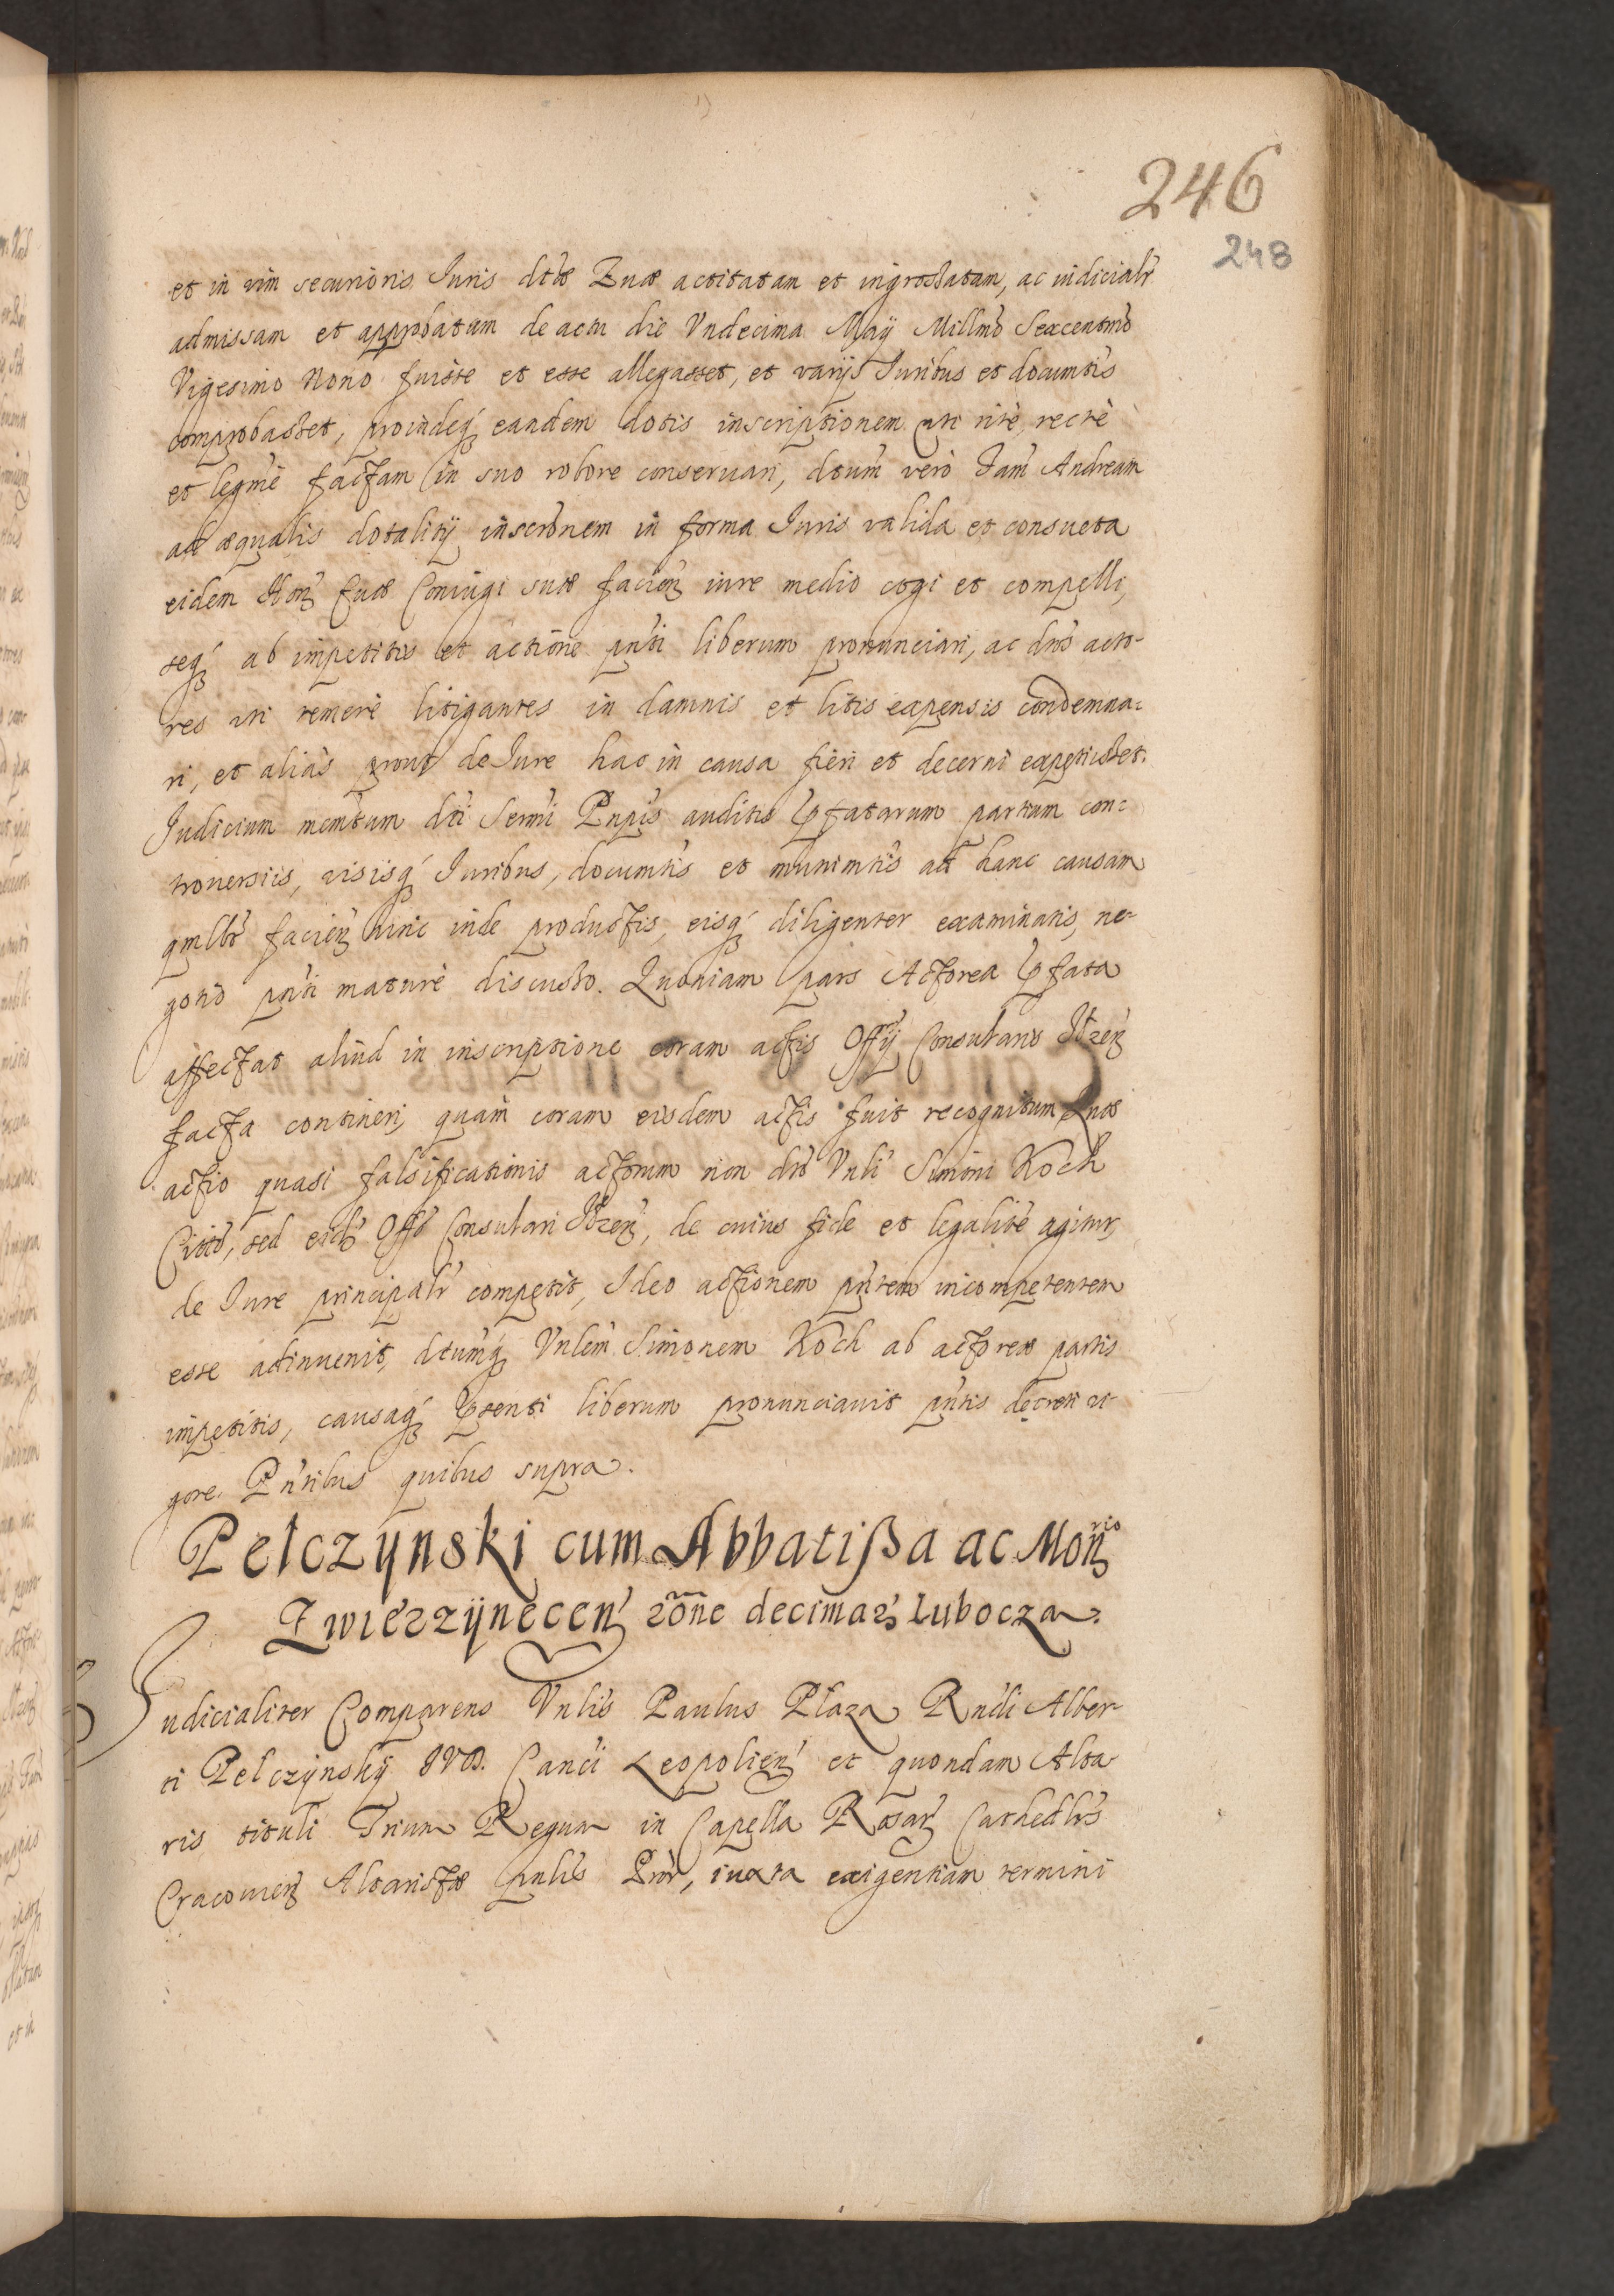 246
248
et in vim securioris Iuris dctæ Euæ actitatam et ingrossatam, ac iudicialr
admissam et approbatam de actu die Vndecima Maÿ Millmo Sexcentmo
Vigesimo Nono fuisse et esse allegasset, et varijs Iuribus et documtis
comprobasset, proindeq eandem dotis inscriptionem uti ritè, rectè
et legmè factam in suo robore conseruari, dctum verò Fam Andream
ad æqualis dotalitÿ inscrònem in forma Iuris valida et consueta
eidem Hon Euæ Coniugi suæ facien iure medio cogi et compelli,
seq ab impetitis et actione pnti liberum pronunciari, ac dctos acto-
res uti temerè litigantes in damnis et litis expensis condemna-
ri, et aliàs prout de Iure hac in causa fieri et decerni expetijsset.
Iudicium memtum dcti Sermi Pnpis auditis pfatarum partium con-
trouersiis, visisq Iuribus, documtis et munimtis ad hanc causam
qmlbt facien hinc inde productis, eisq diligenter examinatis, ne-
gotio pnti maturè discusso. Quoniam pars Actorea pfata
affectat aliud in inscriptione coram actis Offÿ Consularis
facta contineri, quàm coram eisdem actis fuit recognitum Quæ
actio quasi falsificationis actorum non dcto Vnli Simoni Koch
Citto, sed eidb Offo Consulari, de cuius fide et legalite agitur,
de Iure principalr competit, Ideo actionem pntem incompetentem
esse adinuenit, dctumq Vnlem Simonem Koch ab actoreæ partis
impetitis, causaq psenti liberum pronunciauit pntis decreti vi-
gore. Pntibus quibus supra.
Pelczÿnski cum Abbatißa ac Monrio
Zwierzÿnecen rône decimar Lubocza.
Iudicialiter Comparens Vnlis Paulus Płaza Rndi Alber-
ti Pelczÿnskÿ IVD. Canci Leopolien et quondam Alta-
ris tituli Trium Regum in Capella Rosar Cathedlis
Cracouien Altaristæ pnlis Pror, iuxta exigentiam termini